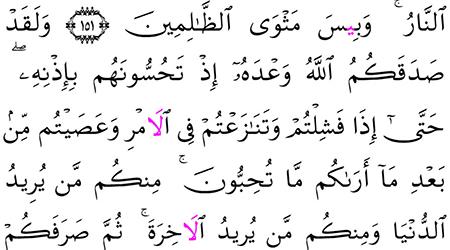 اَ۬لنَّارُۖ وَبِيسَ مَثْوَى اَ۬لظَّٰلِمِينَۖ ١٥١ وَلَقَدْ
صَدَقَكُمُ اُ۬للَّهُ وَعْدَهُۥٓ إِذْ تَحُسُّونَهُم بِإِذْنِهِۦۖ
حَتَّىٰٓ إِذَا فَشِلْتُمْ وَتَنَٰزَعْتُمْ فِى اِ۬لَامْرِ وَعَصَيْتُم مِّنۢ
بَعْدِ مَآ أَر۪ىٰكُم مَّا تُحِبُّونَۖ مِنكُم مَّن يُرِيدُ
اُ۬لدُّنْيَا وَمِنكُم مَّن يُرِيدُ اُ۬لَاخِرَةَۖ ثُمَّ صَرَفَكُمْ